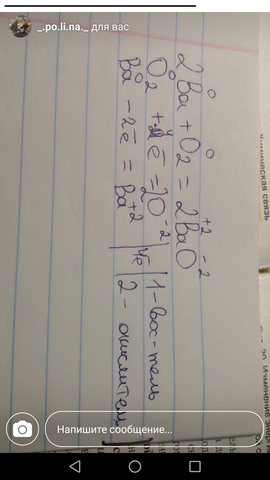 _.po.li.na._ для вас
2Ba⁰ + O₂⁰ = 2Ba⁺²O⁻²
O₂⁰ + 4ē = 2O⁻² | 4ē | 1 - вос-тель
Ba⁰ - 2ē = Ba⁺² | | 2 - окислитель
химическая связь
Изменение
Напишите сообщение...